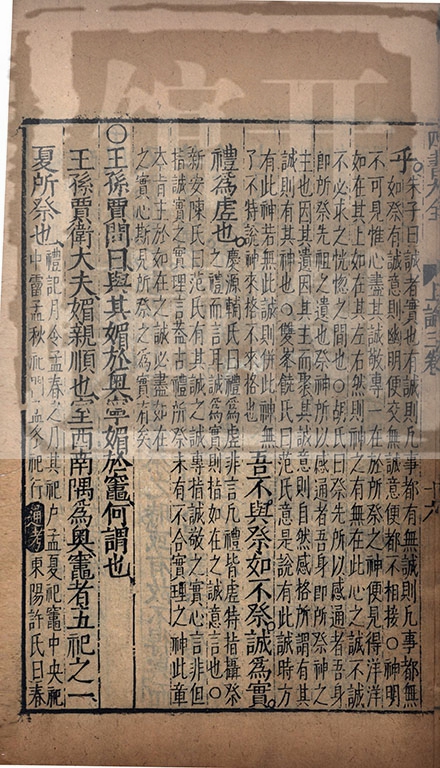 四書大全 上論三卷
乎。朱子曰誠者實也有誠則凡事都有無誠則凡事都無
如祭有誠意則幽明便交無誠意便都不相接○神明
不可見惟心盡其誠敬專一在於所祭之神便見得洋洋
如在其上如在其左右然則神之有無在此心之誠不誠
不必求之恍惚之間也○胡氏曰祭先所以感通者吾身
即所祭先祖之遺也祭神所以感通者吾身即所祭神之
主也因其遺因其主而聚其誠意則自然感格所謂有其
誠則有其神也○雙峯饒氏曰范氏意是說有此誠時方
有此神若無此誠則併此神無
了不特說神來格不來格也
吾不與祭如不祭誠為實。
禮為虛也。慶源輔氏曰禮為虛非言凡禮皆虛特指攝祭
之禮而言耳誠為實則指如在之誠意言也○
新安陳氏曰范氏有其誠之誠專指誠敬之實心言非但
指誠實之實理言蓋古禮所祭未有不合實理之神此章
本旨主於如在之誠必盡如在
之實心斯見所祭之為實有矣
○王孫賈問曰與其媚於奧寧媚於竈何謂也
王孫賈衛大夫媚親順也室西南隅為奧竈者五祀之一
夏所祭也禮記月令孟春之月其祀户孟夏祀竈中央祀
中霤孟秋祀門孟冬祀行通考東陽許氏曰春